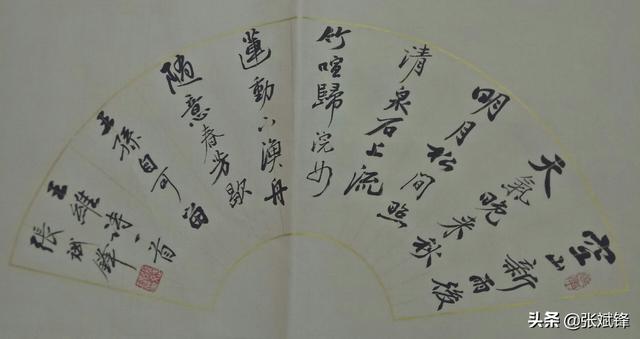 空山新雨後
天氣晚来秋
明月松間照
清泉石上流
竹喧歸浣女
蓮動下漁舟
随意春芳歇
王孫自可留
王維诗一首
張斌鋒
头条 @张斌锋